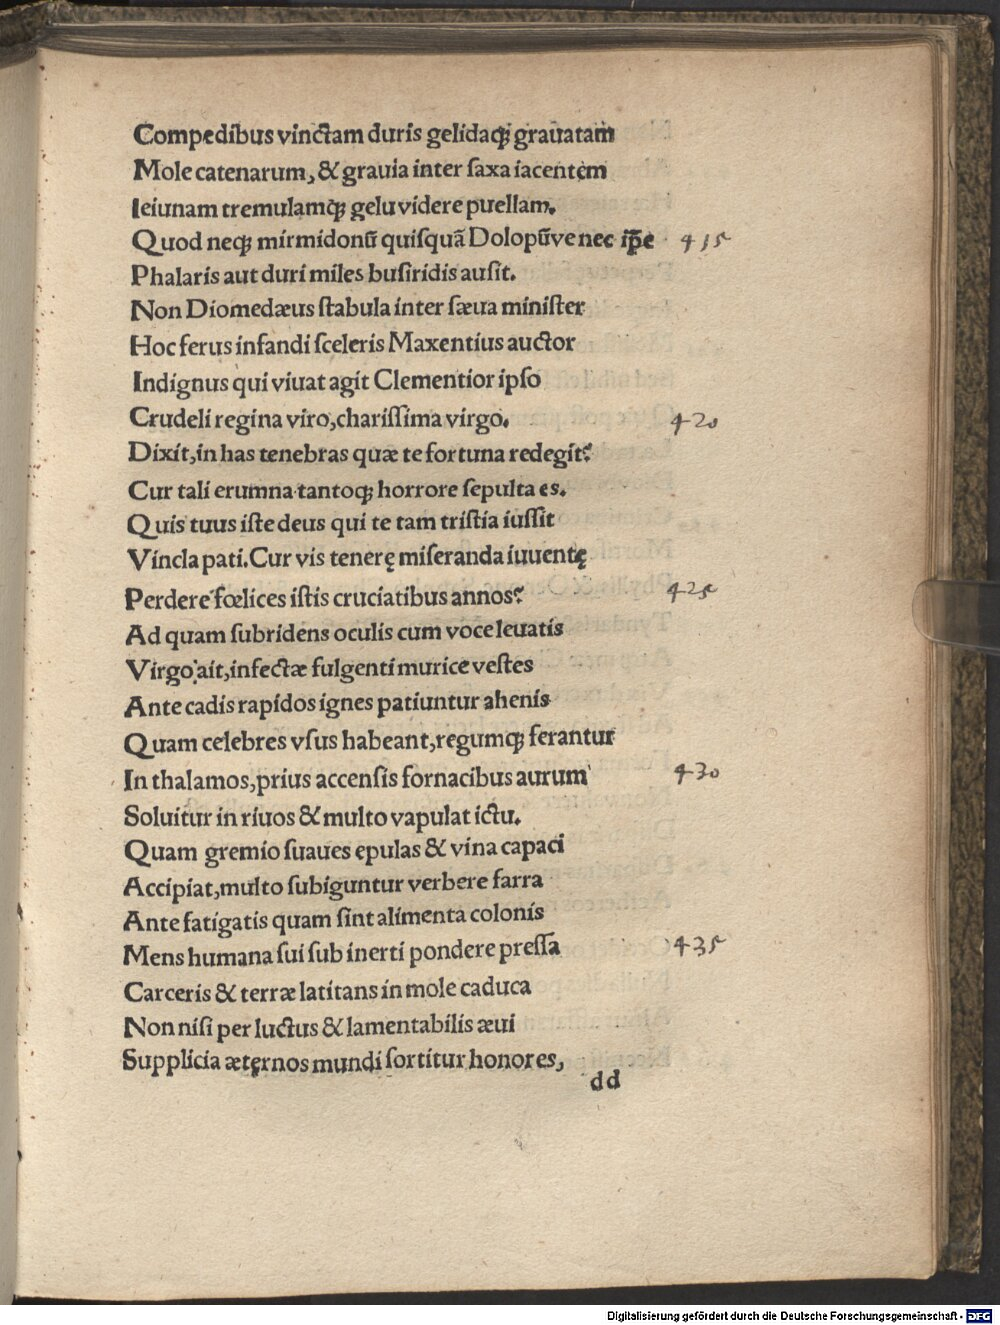 Compedibus vinctam duris gelidaqȝ grauatam
Mole catenarum, & grauia inter ſaxa iacentem
Ieiunam tremulamqȝ gelu videre puellam.
Quod neqȝ mirmidonū quiſquā Dolopūve nec ip̄e 415
Phalaris aut duri miles buſiridis auſit.
Non Diomedæus ſtabula inter ſæua miniſter
Hoc ferus infandi ſceleris Maxentius auctor
Indignus qui viuat agit Clementior ipſo
Crudeli regina viro, chariſſima virgo. 420
Dixit, in has tenebras quæ te fortuna redegit?
Cur tali erumna tantoqȝ horrore ſepulta es.
Quis tuus iſte deus qui te tam triſtia iuſſit
Vincla pati. Cur vis tenerę miſeranda iuuentę
Perdere fœlices iſtis cruciatibus annos? 425
Ad quam ſubridens oculis cum voce leuatis
Virgo ait, infectæ fulgenti murice veſtes
Ante cadis rapidos ignes patiuntur ahenis
Quam celebres vſus habeant, regumqȝ ferantur
In thalamos, prius accenſis fornacibus aurum 430
Soluitur in riuos & multo vapulat ictu.
Quam gremio ſuaues epulas & vina capaci
Accipiat, multo ſubiguntur verbere farra
Ante fatigatis quam ſint alimenta colonis
Mens humana ſui ſub inerti pondere preſſa 435
Carceris & terræ latitans in mole caduca
Non niſi per luctus & lamentabilis æui
Supplicia æternos mundi ſortitur honores,
dd
Digitalisierung gefördert durch die Deutsche Forschungsgemeinschaft - DFG